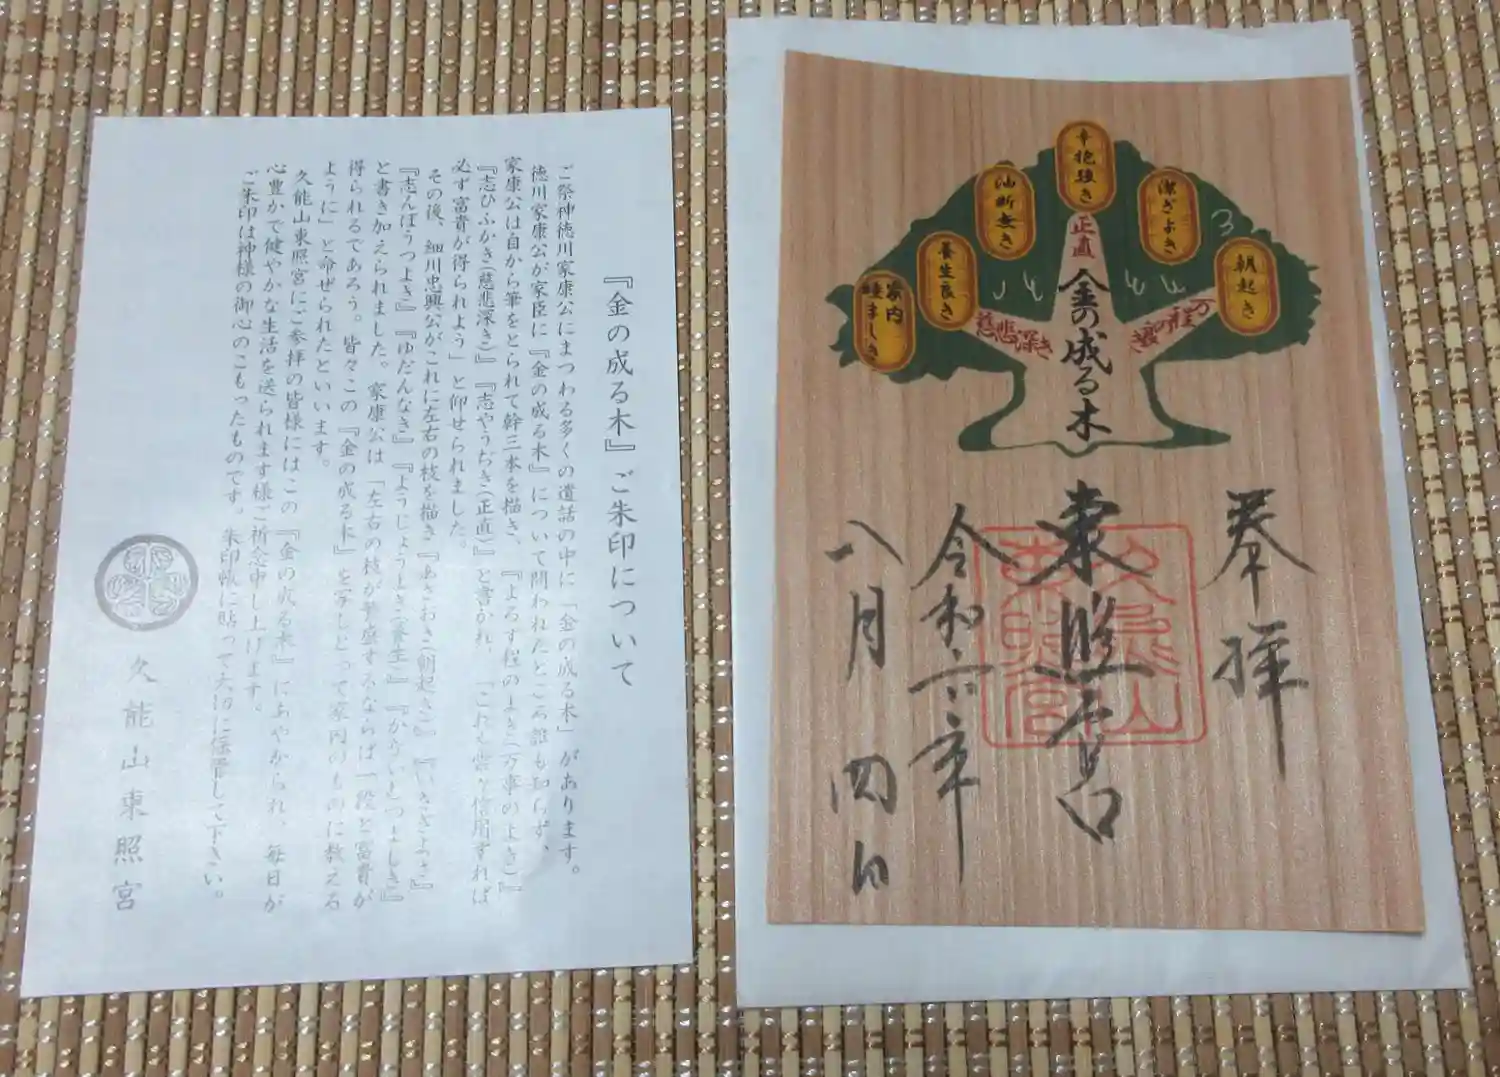 『金の成る木』ご朱印について
ご祭神徳川家康公にまつわる多くの遺話の中に「金の成る木」があります。
徳川家康公が家臣に『金の成る木』について問われたところ誰も知らず、
家康公は自から筆をとられて幹三本を描き、『よろず程のよき(万事のよき)』
『志ひふかき(慈悲深き)』『志やうぢき(正直)』と書かれ、「これを常々信用すれば
必ず富貴が得られよう」と仰せられました。
その後、細川忠興公がこれに左右の枝を描き『あさおき(朝起き)』『いさぎよき』
『志んぼうつよき』『ゆだんなき』『ようじょうよき(養生)』『かないむつまじき』
と書き加えられました。家康公は「左右の枝が繁盛するならば一段と富貴が
得られるであろう。皆々この『金の成る木』を写しとって家内のものに教える
ように」と命ぜられたといいます。
久能山東照宮にご参拝の皆様にはこの『金の成る木』にあやかられ、毎日が
心豊かで健やかな生活を送られます様ご祈念申し上げます。
ご朱印は神様の御心のこもったものです。朱印帳に貼って大切に保管して下さい。
久能山東照宮
辛抱強き
油断無き
潔ぎよき
養生良き
朝起き
家内
睦ましき
正直
慈悲深き
万の程よき
金の成る木
奉拝
東照宮
令和六年
八月四日
久能山
東照宮